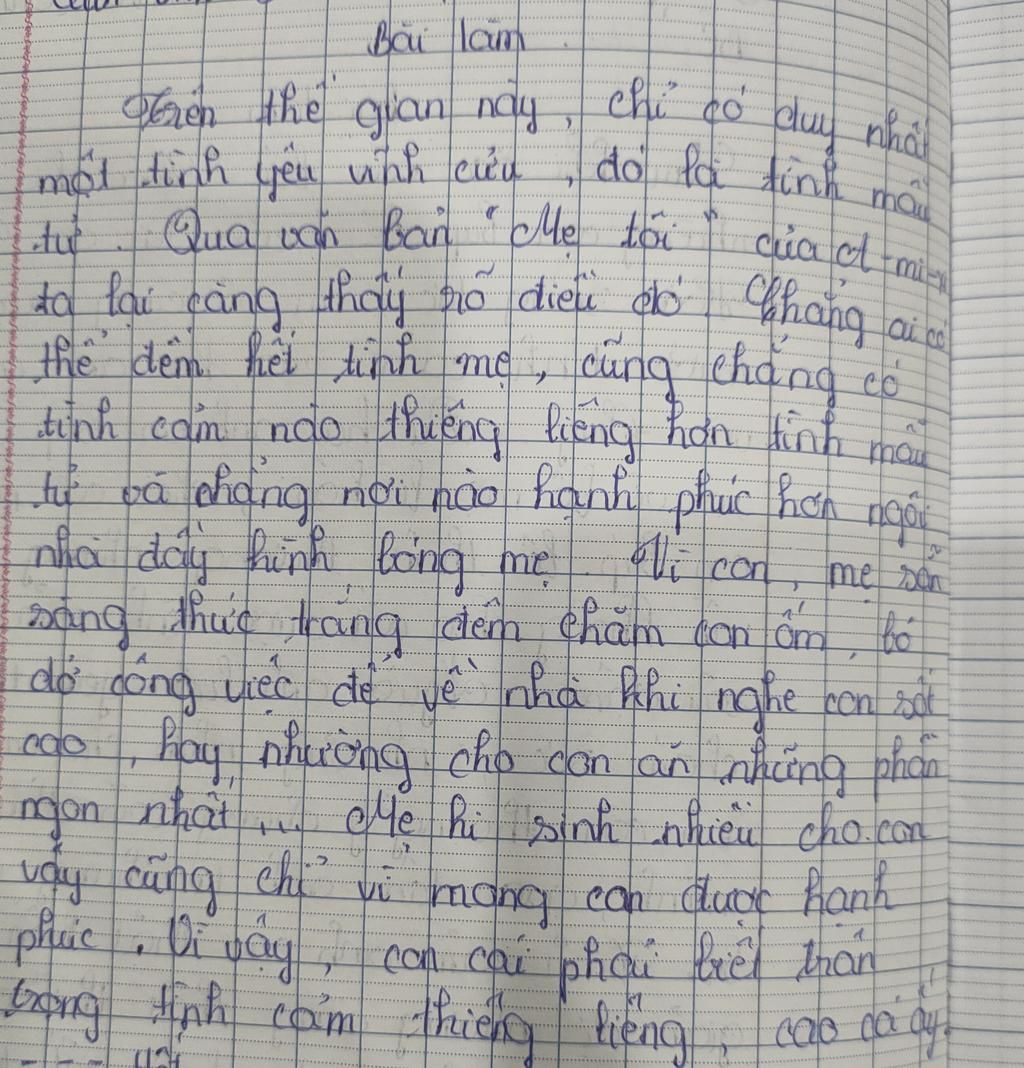 Bài làm
Trên thế gian này, chỉ có duy nhất
một tình yêu vĩnh cửu, đó là tình mẫu
tử. Qua văn bản "Mẹ tôi" của A-mi-xi
ta lại càng thấy rõ điều đó. Chẳng ai có
thể đếm hết tình mẹ, cũng chẳng có
tình cảm nào thiêng liêng hơn tình mẫu
tử và chẳng nơi nào hạnh phúc hơn ngôi
nhà đầy hình bóng mẹ. Vì con, mẹ sẵn
sàng thức trắng đêm chăm con ốm, bỏ
dở công việc để về nhà khi nghe con sốt
cao, hay nhường cho con ăn những phần
ngon nhất... Mẹ hi sinh nhiều cho con
vậy cũng chỉ vì mong con được hạnh
phúc. Vì vậy, con cái phải biết trân
trọng tình cảm thiêng liêng, cao cả ấy.